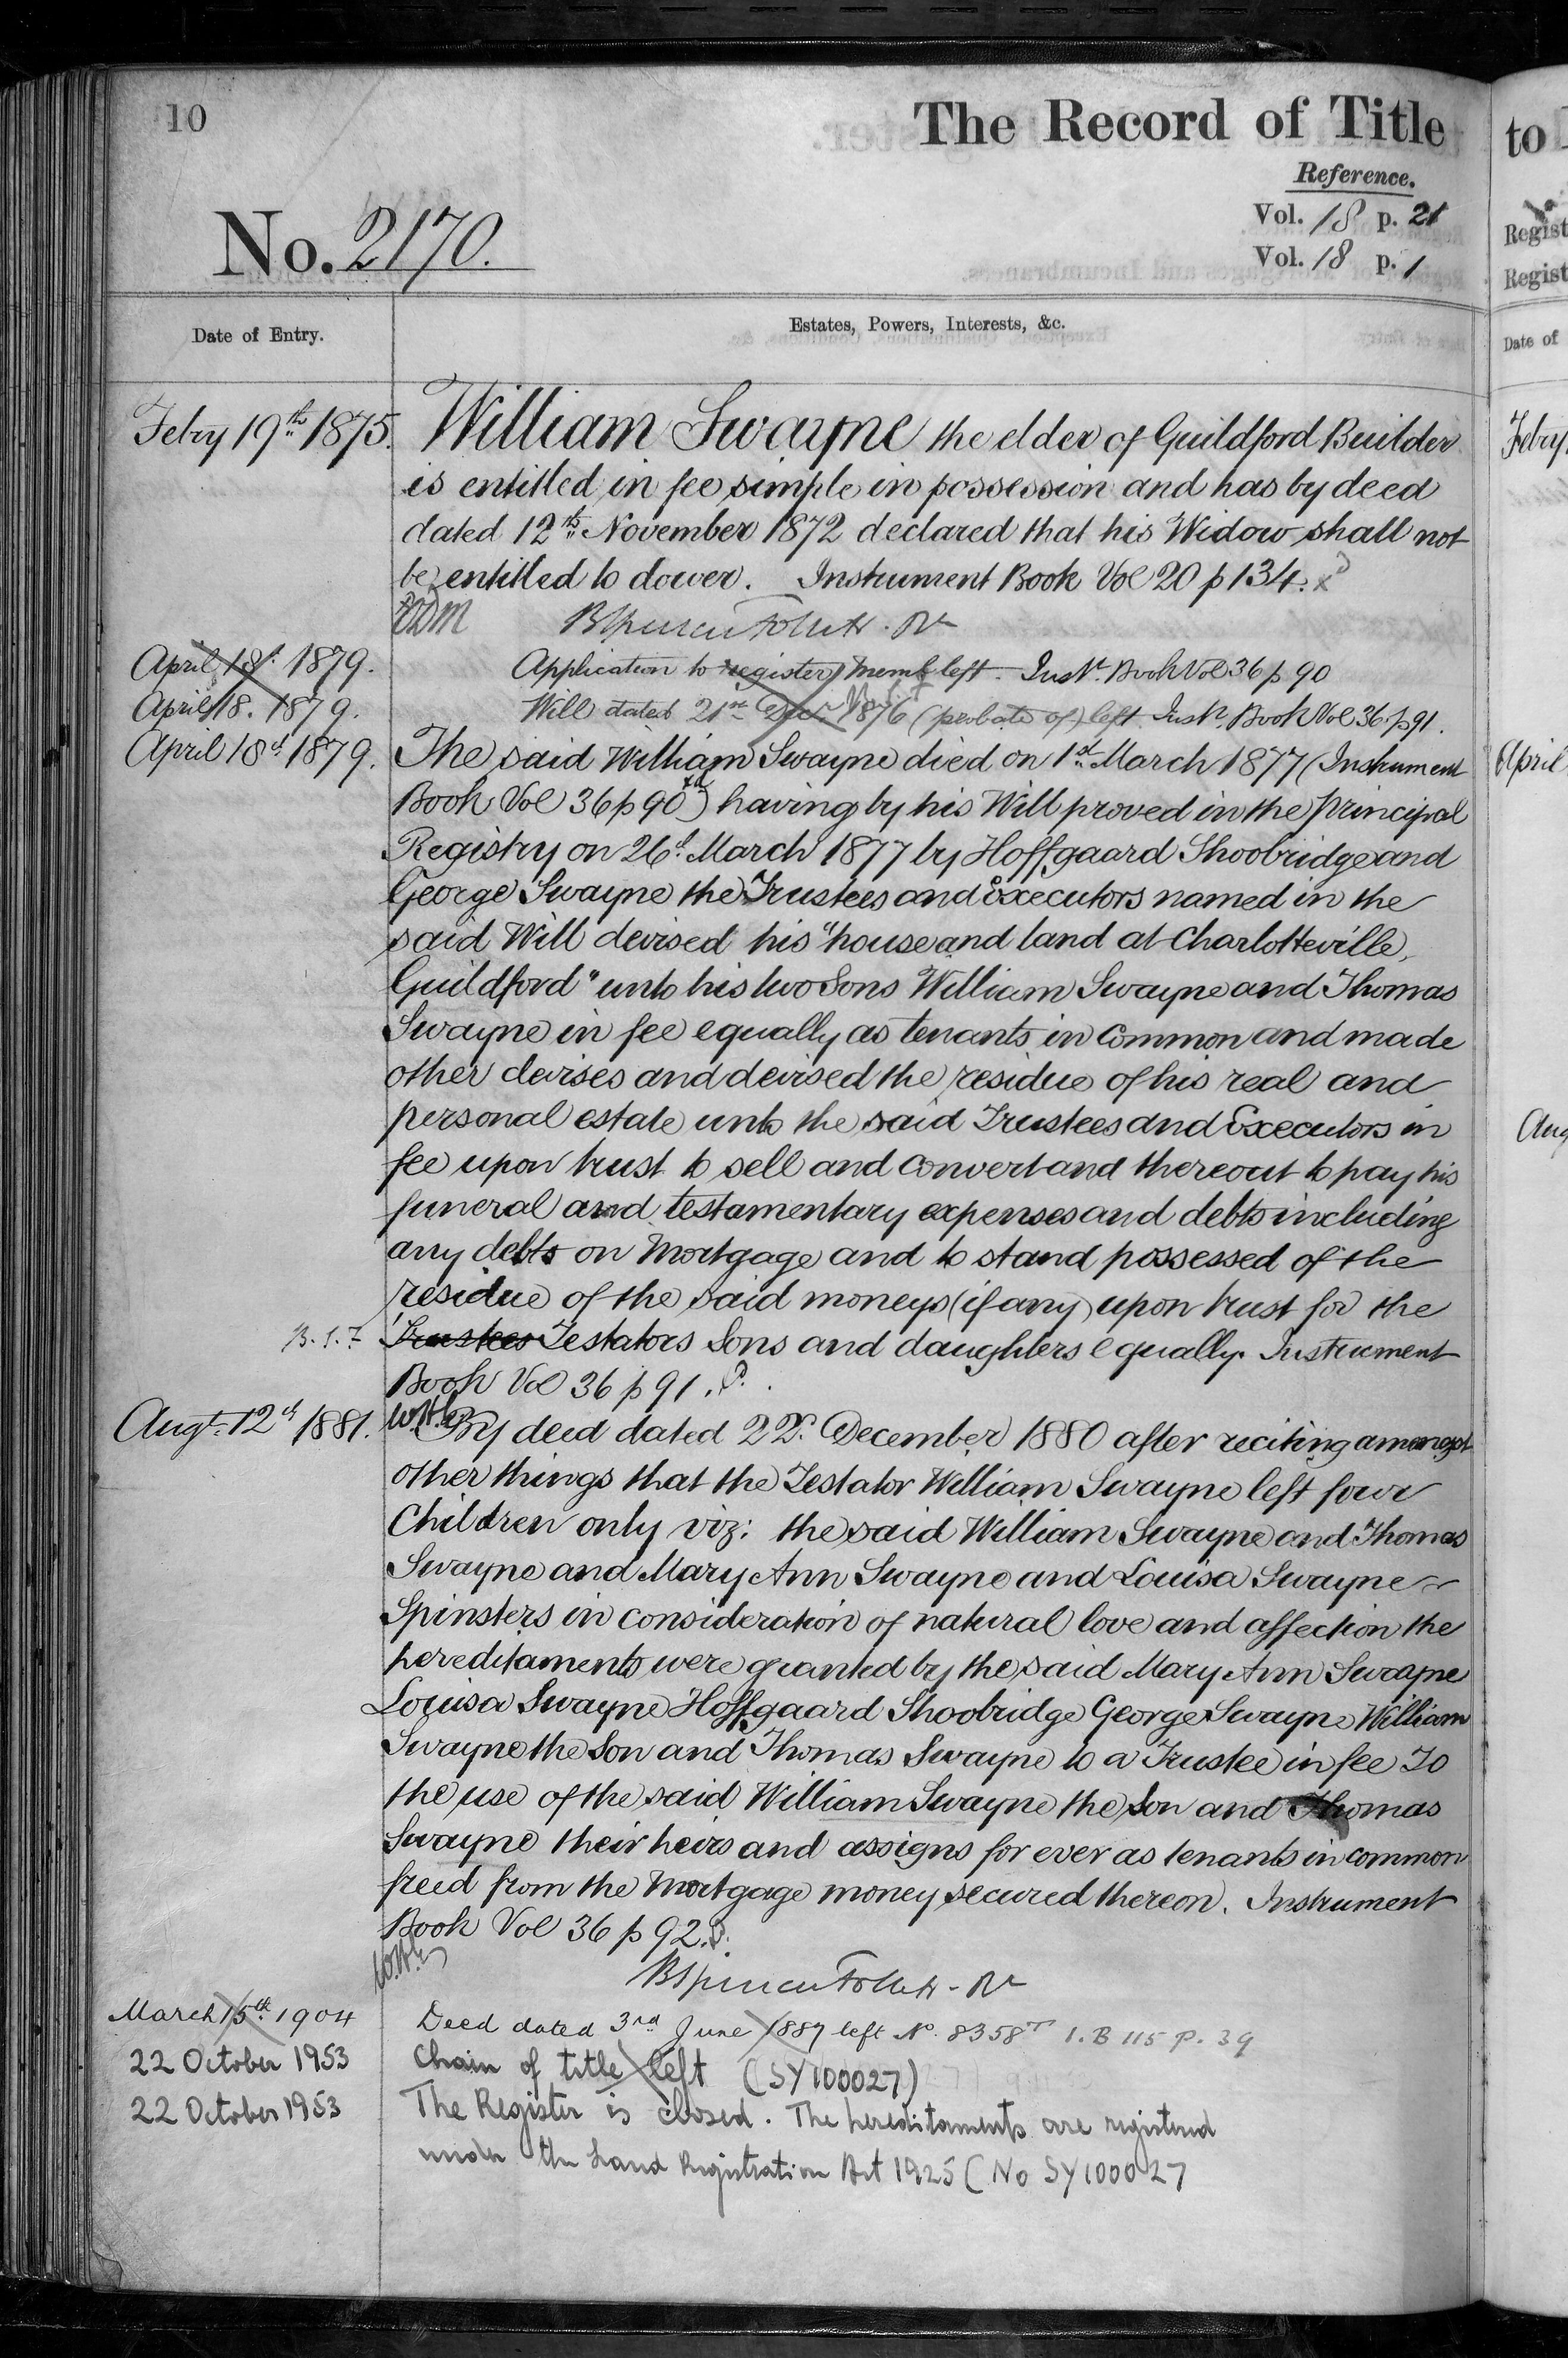 10
The Record of Title
to
Reference.
Vol. 18 p. 21
Vol. 18 p. 1
No. 2170.
Regist
Regist
Date of Entry.
Estates, Powers, Interests, &c.
Date of
Febry 19th 1875.
William Swayne the elder of Guildford Builder
is entitled in fee simple in possession and has by deed
dated 12th November 1872 declared that his Widow shall not
be entitled to dower. Instrument Book Vol 20 p 134.
Febry
April 18th 1879.
Application to register left. Inst. Book Vol 36 p 90
April 18. 1879.
Will dated 21st 1876 (probate of) left Inst. Book Vol 36. p 91.
April 18th 1879.
The said William Swayne died on 1st March 1877 (Instrument
Book Vol 36 p 90) having by his Will proved in the Principal
Registry on 26th March 1877 by Hoffgaard Shoobridge and
George Swayne the Trustees and Executors named in the
said Will devised his "house and land at Charlotteville,
Guildford" unto his two Sons William Swayne and Thomas
Swayne in fee equally as tenants in Common and made
other devises and devised the residue of his real and
personal estate unto the said Trustees and Executors in
fee upon trust to sell and convert and thereout to pay his
funeral and testamentary expenses and debts including
any debts on Mortgage and to stand possessed of the
residue of the said moneys (if any) upon trust for the
Trustees Testators Sons and daughters equally. Instrument
Book Vol 36 p 91.
April
Aug
Augt. 12th 1881.
By deed dated 22d. December 1880 after reciting amongst
other things that the Testator William Swayne left four
Children only viz: the said William Swayne and Thomas
Swayne and Mary Ann Swayne and Louisa Swayne
Spinsters in consideration of natural love and affection the
hereditaments were granted by the said Mary Ann Swayne
Louisa Swayne Hoffgaard Shoobridge George Swayne William
Swayne the Son and Thomas Swayne to a Trustee in fee To
the use of the said William Swayne the Son and Thomas
Swayne their heirs and assigns for ever as tenants in common
freed from the Mortgage money secured thereon. Instrument
Book Vol 36 p 92.
March 15th. 1904
Deed dated 3rd June 1887 left No. 8358 I.B 115 P. 39
22 October 1953
Chain of title left (SY100027)
22 October 1953
The Register is closed. The hereditaments are registered
under the Land Registration Act 1925 (No SY100027